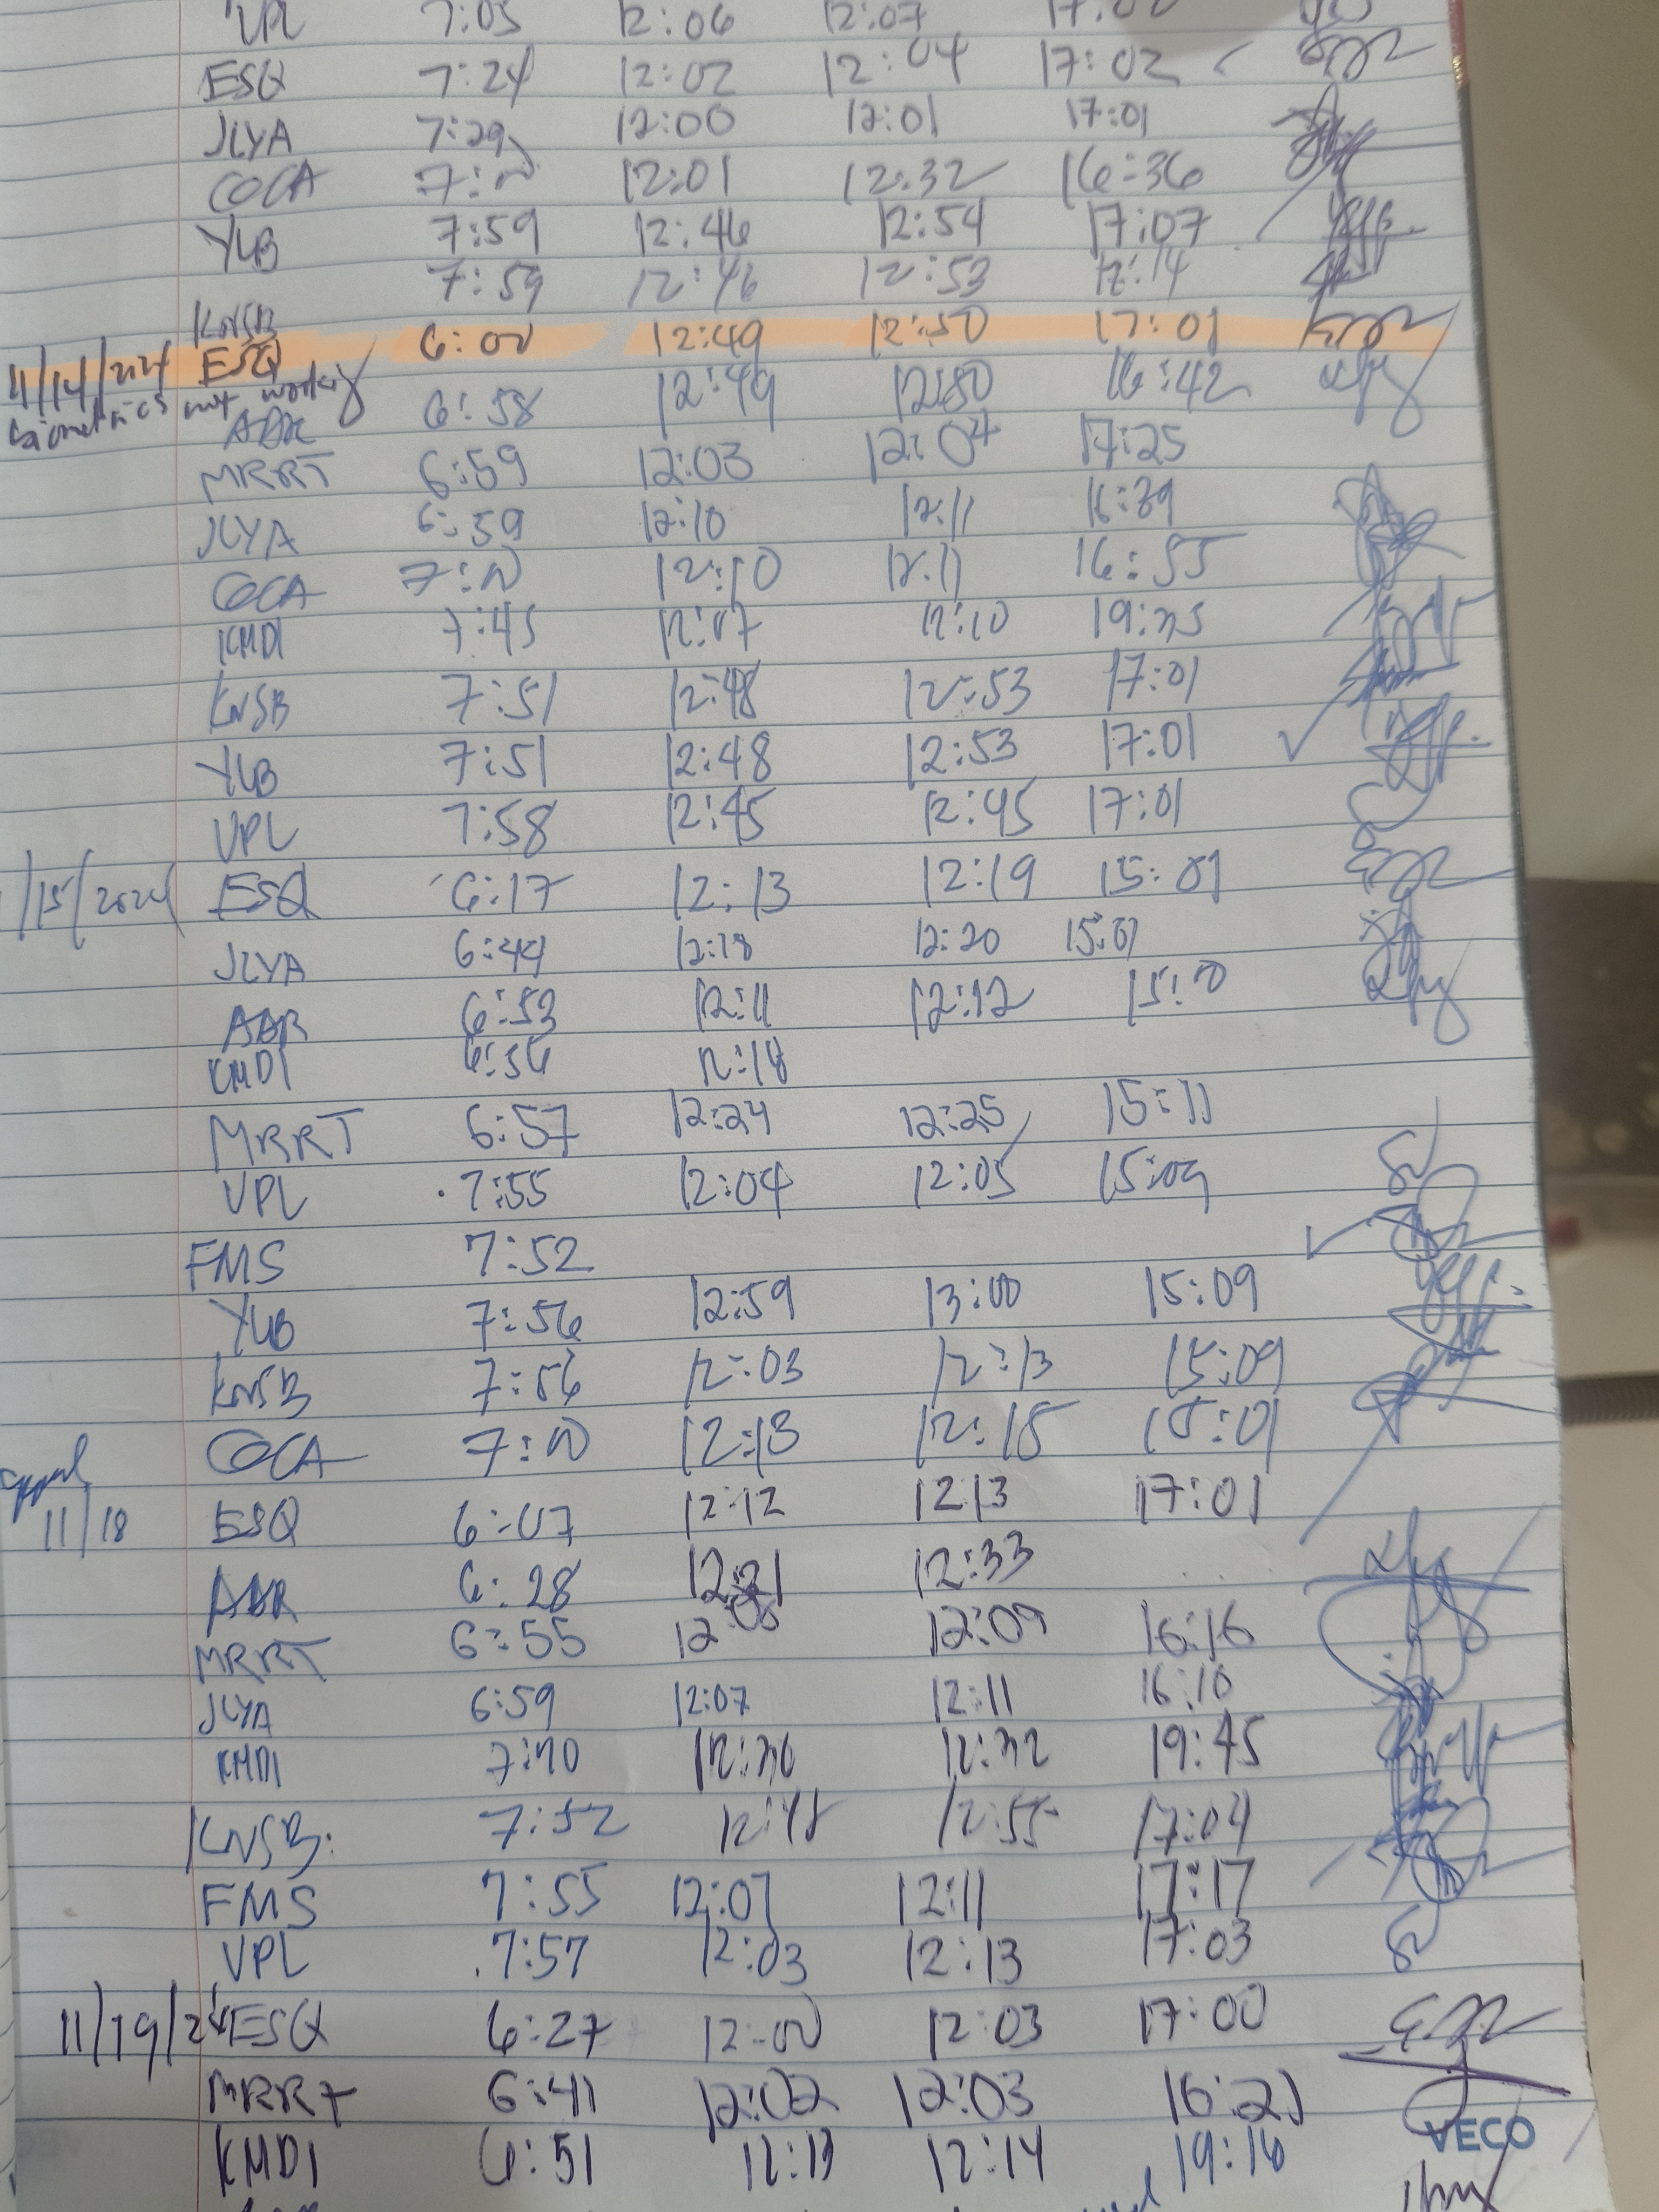 VPL 7:05 12:06 12:07
ESQ 7:24 12:02 12:04 17:02
JLYA 7:29 12:00 12:01 17:01
COCA 7:00 12:01 12:32 16:36
YLB 7:59 12:46 12:54 17:07
KNSB 7:59 12:46 12:53 17:14
11/14/2024 ESQ 6:00 12:49 12:50 17:01
biometrics not working
ABR 6:58 12:49 12:50 16:42
MRRT 6:59 12:03 12:04 17:25
JLYA 6:59 12:10 12:11 16:39
COCA 7:00 12:10 12:11 16:55
KMDI 7:45 12:07 12:10 19:35
KNSB 7:51 12:48 12:53 17:01
YLB 7:51 12:48 12:53 17:01
VPL 7:58 12:45 12:45 17:01
/15/2024 ESQ 6:17 12:13 12:19 15:01
JLYA 6:44 12:18 12:20 15:01
ABR 6:53 12:11 12:12 15:00
KMDI 6:56 12:18
MRRT 6:57 12:24 12:25 15:11
VPL 7:55 12:04 12:05 15:09
FMS 7:52
YLB 7:56 12:59 13:00 15:09
KNSB 7:56 12:03 12:13 15:09
COCA 7:00 12:13 12:15 15:01
11/18 ESQ 6:07 12:12 12:13 17:01
ABR 6:28 12:21 12:33
MRRT 6:55 12:08 12:09 16:16
JLYA 6:59 12:07 12:11 16:10
KMDI 12:32 19:45
KNSB: 7:52 12:48 12:55 17:04
FMS 7:55 12:07 12:11 17:17
VPL 7:57 12:03 12:13 17:03
11/19/24 ESQ 6:27 12:00 12:03 17:00
MRRT 6:41 12:02 12:03 16:21
KMDI 6:51 12:13 12:14 19:16
VECO